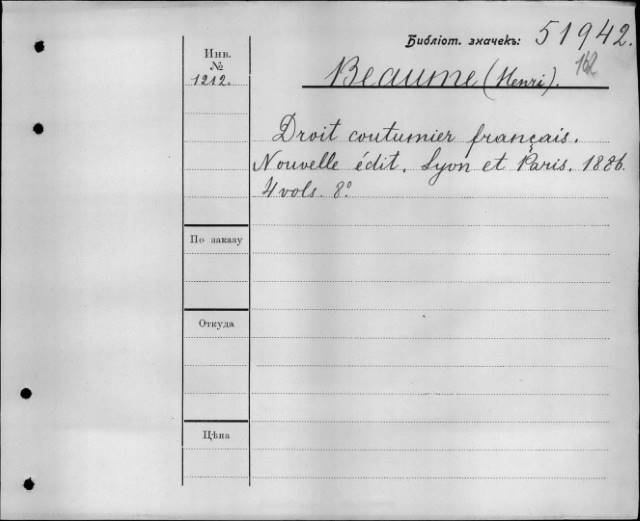 Библіот. значекъ: 51942.
162
Инв.
№
1212.
Beaume (Henri).
Droit coutumier français.
Nouvelle édit. Lyon et Paris. 1886.
4 vols. 8º
По заказу
Откуда
Цѣна